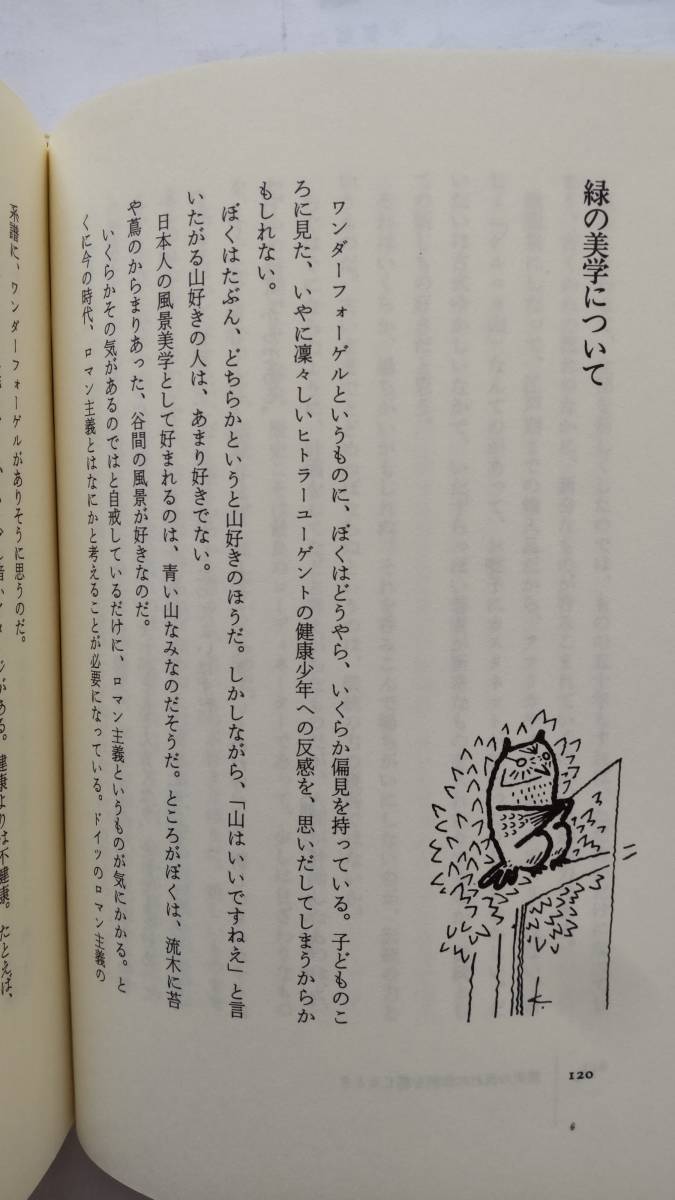 緑の美学について
ワンダーフォーゲルというものに、ぼくはどうやら、いくらか偏見を持っている。子どものこ
ろに見た、いやに凜々しいヒトラーユーゲントの健康少年への反感を、思いだしてしまうからか
もしれない。
ぼくはたぶん、どちらかというと山好きのほうだ。しかしながら、「山はいいですねえ」と言
いたがる山好きの人は、あまり好きでない。
日本人の風景美学として好まれるのは、青い山なみなのだそうだ。ところがぼくは、流木に苔
や蔦のからまりあった、谷間の風景が好きなのだ。
いくらかその気があるのではと自戒しているだけに、ロマン主義というものが気にかかる。と
くに今の時代、ロマン主義とはなにかと考えることが必要になっている。ドイツのロマン主義の
系譜に、ワンダーフォーゲルがありそうに思うのだ。
がある。健康よりは不健康。たとえば、
120